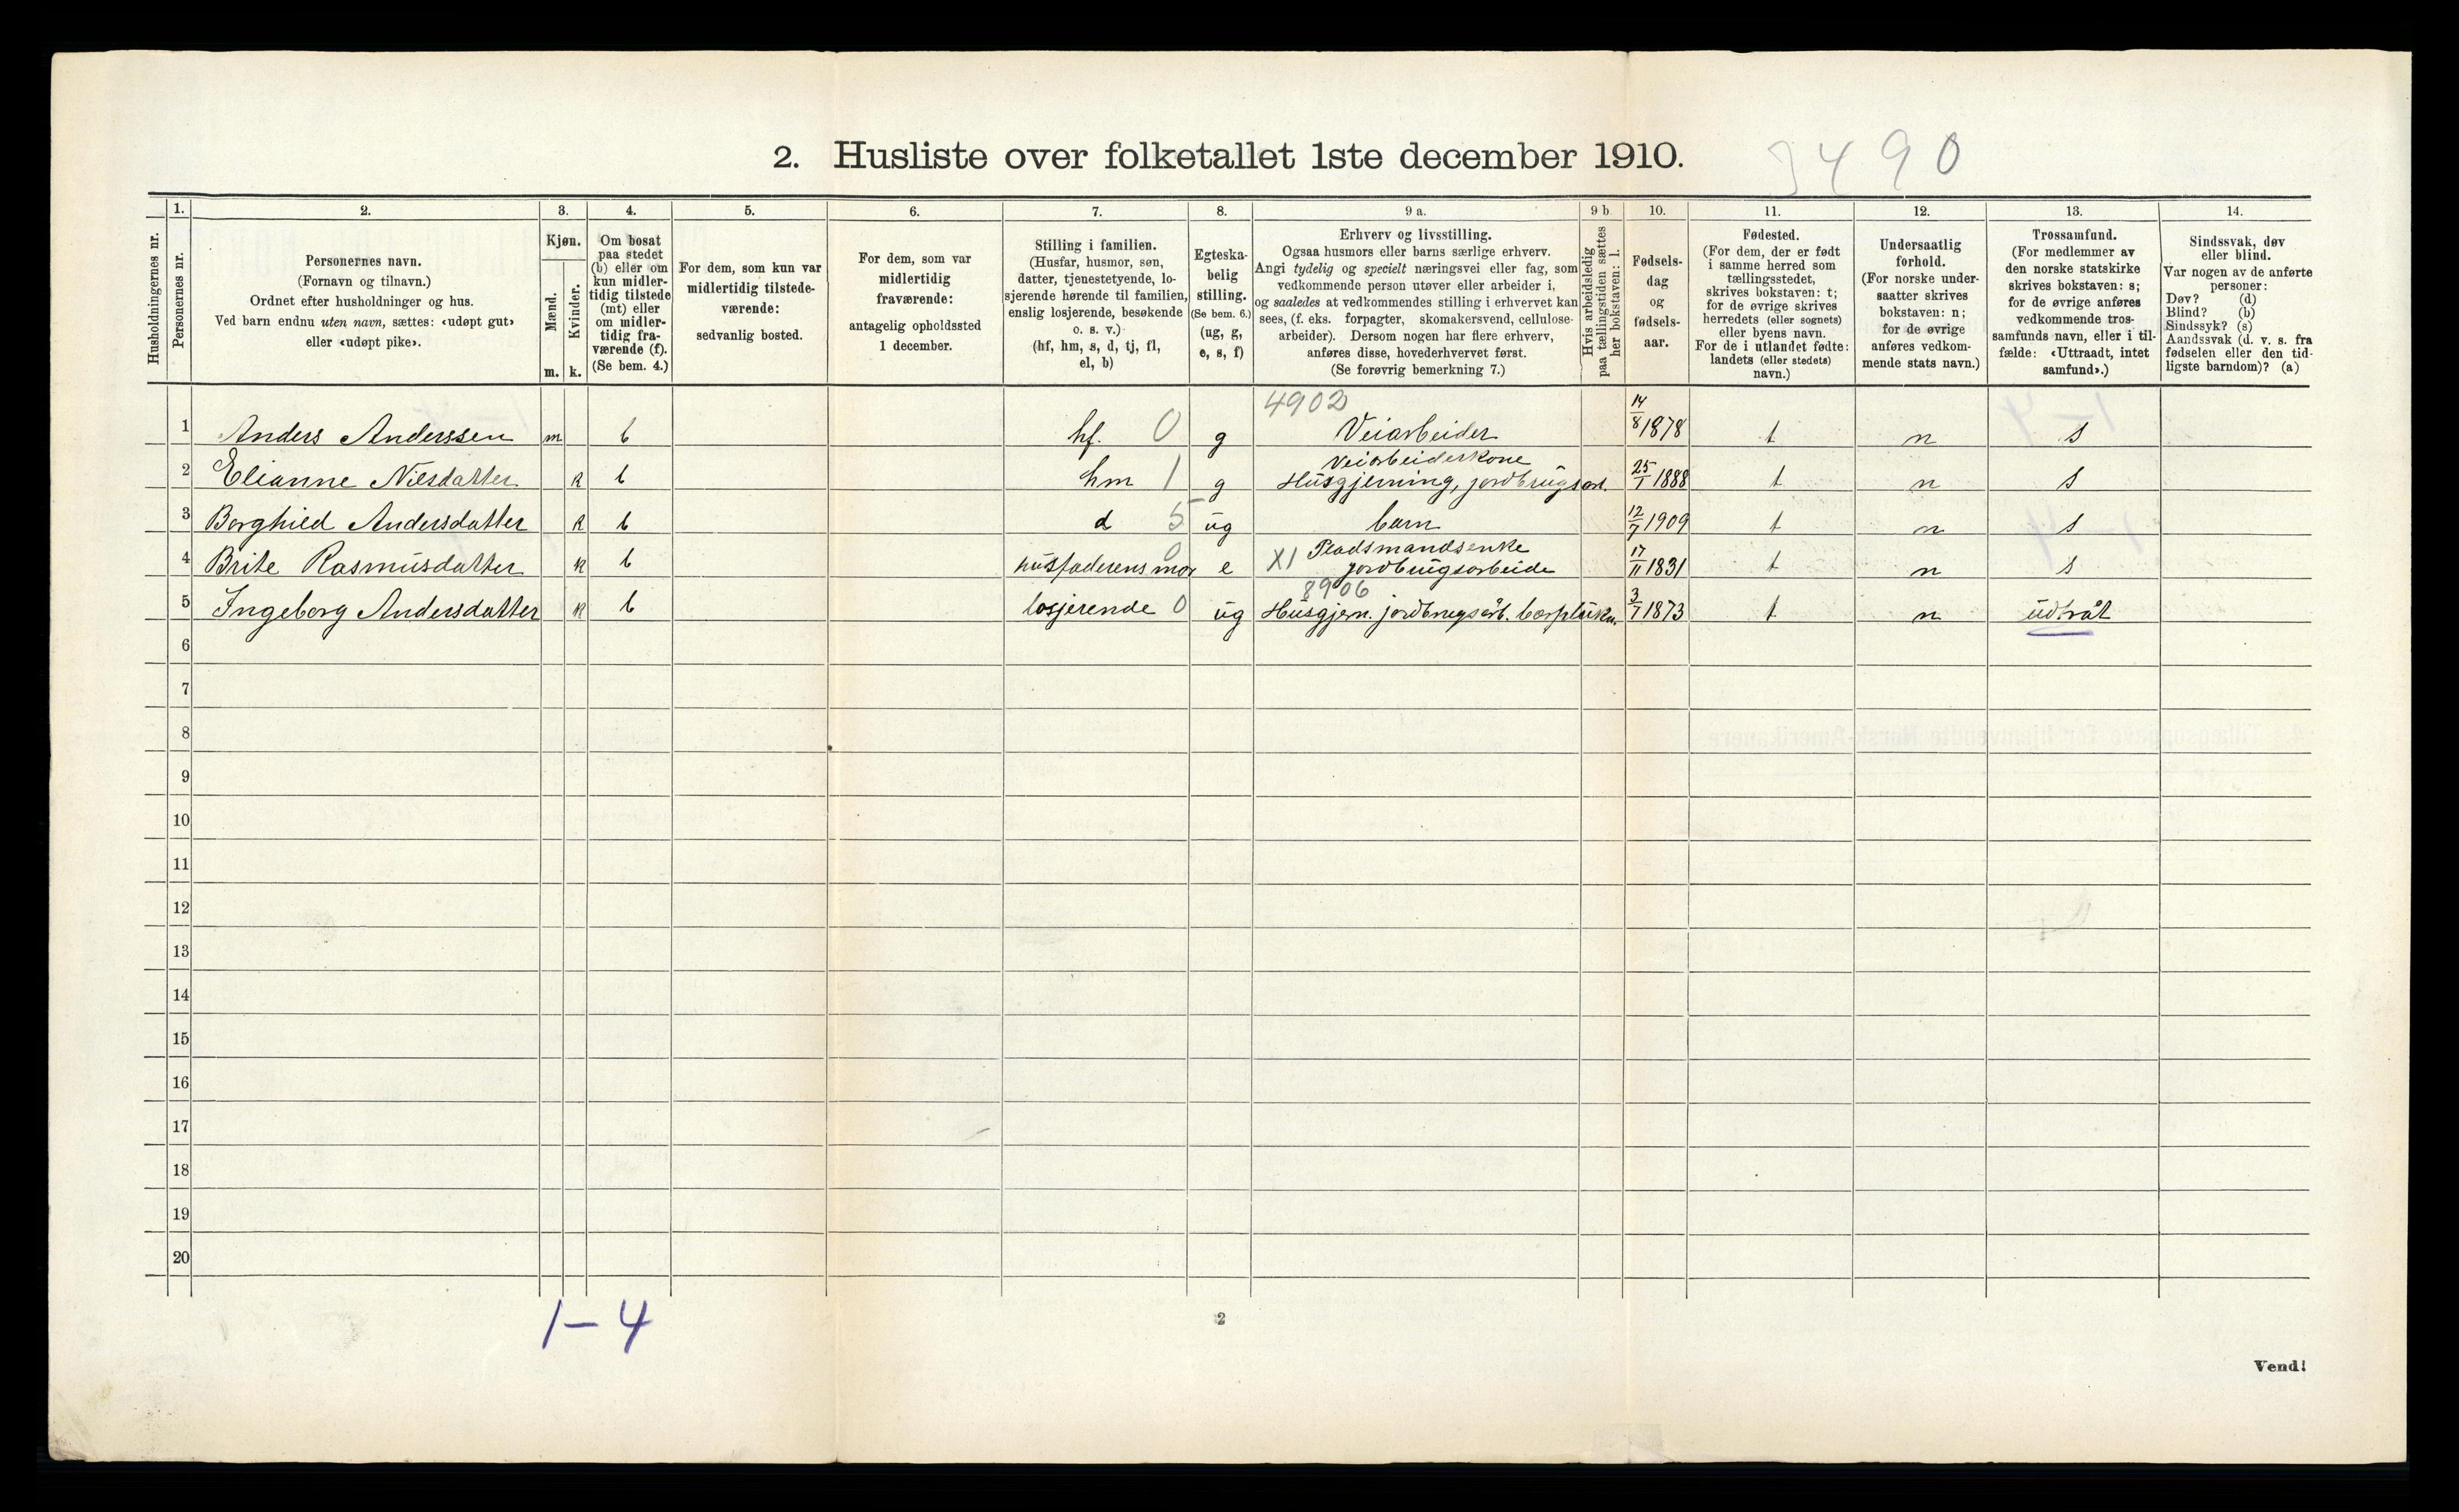 2. Husliste over folketallet 1ste december 1910. 3490
Husholdningernes nr.
1.
Personernes nr.
2.
Personernes navn.
(Fornavn og tilnavn.)
Ordnet efter husholdninger og hus.
Ved barn endnu uten navn, sættes: «udøpt gut»
eller «udøpt pike».
3.
Kjøn.
Mænd.
Kvinder.
m. k.
4.
Om bosat
paa stedet
(b) eller om
kun midler-
tidig tilstede
(mt) eller
om midler-
tidig fra-
værende (f).
(Se bem. 4.)
5.
For dem, som kun var
midlertidig tilstede-
værende:
sedvanlig bosted.
6.
For dem, som var
midlertidig
fraværende:
antagelig opholdssted
1 december.
7.
Stilling i familien.
(Husfar, husmor, søn,
datter, tjenestetyende, lo-
sjerende hørende til familien,
enslig losjerende, besøkende
o. s. v.)
(hf, hm, s, d, tj, fl,
el, b)
8.
Egteska-
belig
stilling.
(Se bem. 6.)
(ug, g,
e, s, f)
9 a.
Erhverv og livsstilling.
Ogsaa husmors eller barns særlige erhverv.
Angi tydelig og specielt næringsvei eller fag, som
vedkommende person utøver eller arbeider i,
og saaledes at vedkommendes stilling i erhvervet kan
sees, (f. eks. forpagter, skomakersvend, cellulose-
arbeider). Dersom nogen har flere erhverv,
anføres disse, hovederhvervet først.
(Se forøvrig bemerkning 7.)
9 b
Hvis arbeidsledig
paa tællingstiden sættes
her bokstaven: l.
10.
Fødsels-
dag
og
fødsels-
aar.
11.
Fødested.
(For dem, der er født
i samme herred som
tællingsstedet,
skrives bokstaven: t;
for de øvrige skrives
herredets (eller sognets)
eller byens navn.
For de i utlandet fødte:
landets (eller stedets)
navn.)
12.
Undersaatlig
forhold.
(For norske under-
saatter skrives
bokstaven: n;
for de øvrige
anføres vedkom-
mende stats navn.)
13.
Trossamfund.
(For medlemmer av
den norske statskirke
skrives bokstaven: s;
for de øvrige anføres
vedkommende tros-
samfunds navn, eller i til-
fælde: «Uttraadt, intet
samfund».)
14.
Sindssvak, døv
eller blind.
Var nogen av de anførte
personer:
Døv? (d)
Blind? (b)
Sindssyk? (s)
Aandssvak (d. v. s. fra
fødselen eller den tid-
ligste barndom)? (a)
4902
1 Anders Anderssen m b hf. 0 g Veiarbeider 14/8 1878 t n s
Veiarbeiderkone
2 Elianne Nilsdatter k b hm 1 g Husgjerning, jordbrugsarb. 25/1 1888 t n s
3 Borghild Andersdatter k b d 5 ug barn 12/7 1909 t n s
Pladsmandsenke
4 Brite Rasmusdatter k b husfaderens mor 0 e XI jordbrugsarbeide 17/11 1831 t n s
8906
5 Ingeborg Andersdatter k b losjerende 0 ug Husgjern. jordbrugsarb. bærplukn. 3/7 1873 t n udtråt
6
7
8
9
10
11
12
13
14
15
16
17
18
19
20
1 – 4
2
Vend!